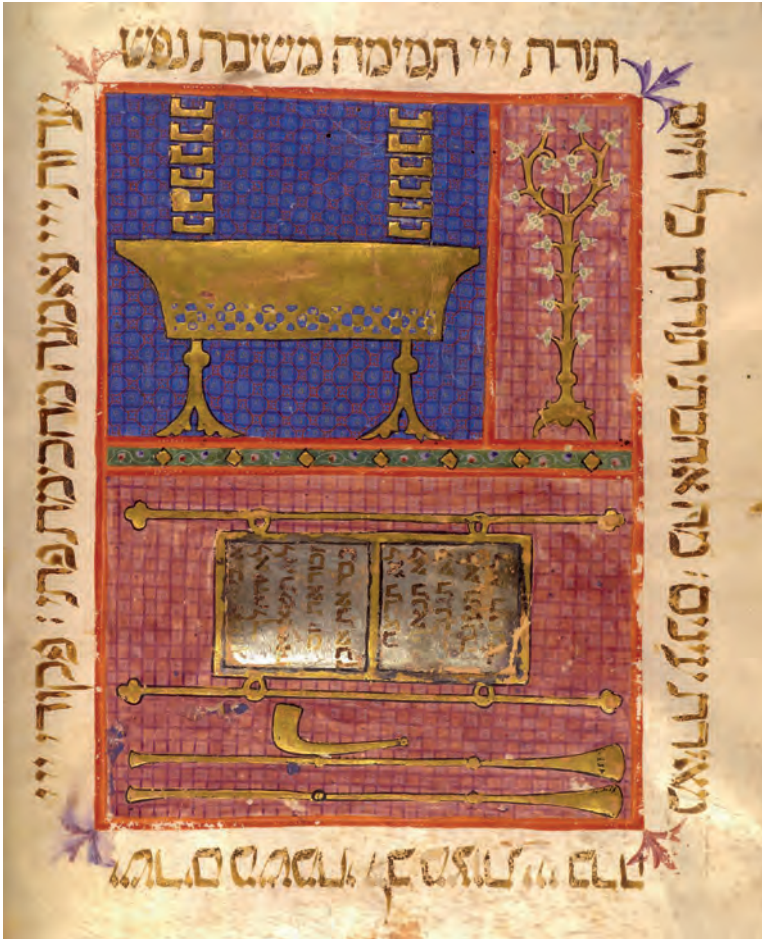 תורת ייי תמימה משיבת נפש
עדות ייי נאמנה מחכימת פתי : פקודי ייי
ישרים משמחי לב מצות יי ברה
מאירת עינים : מה אהבתי תורתך כל היום